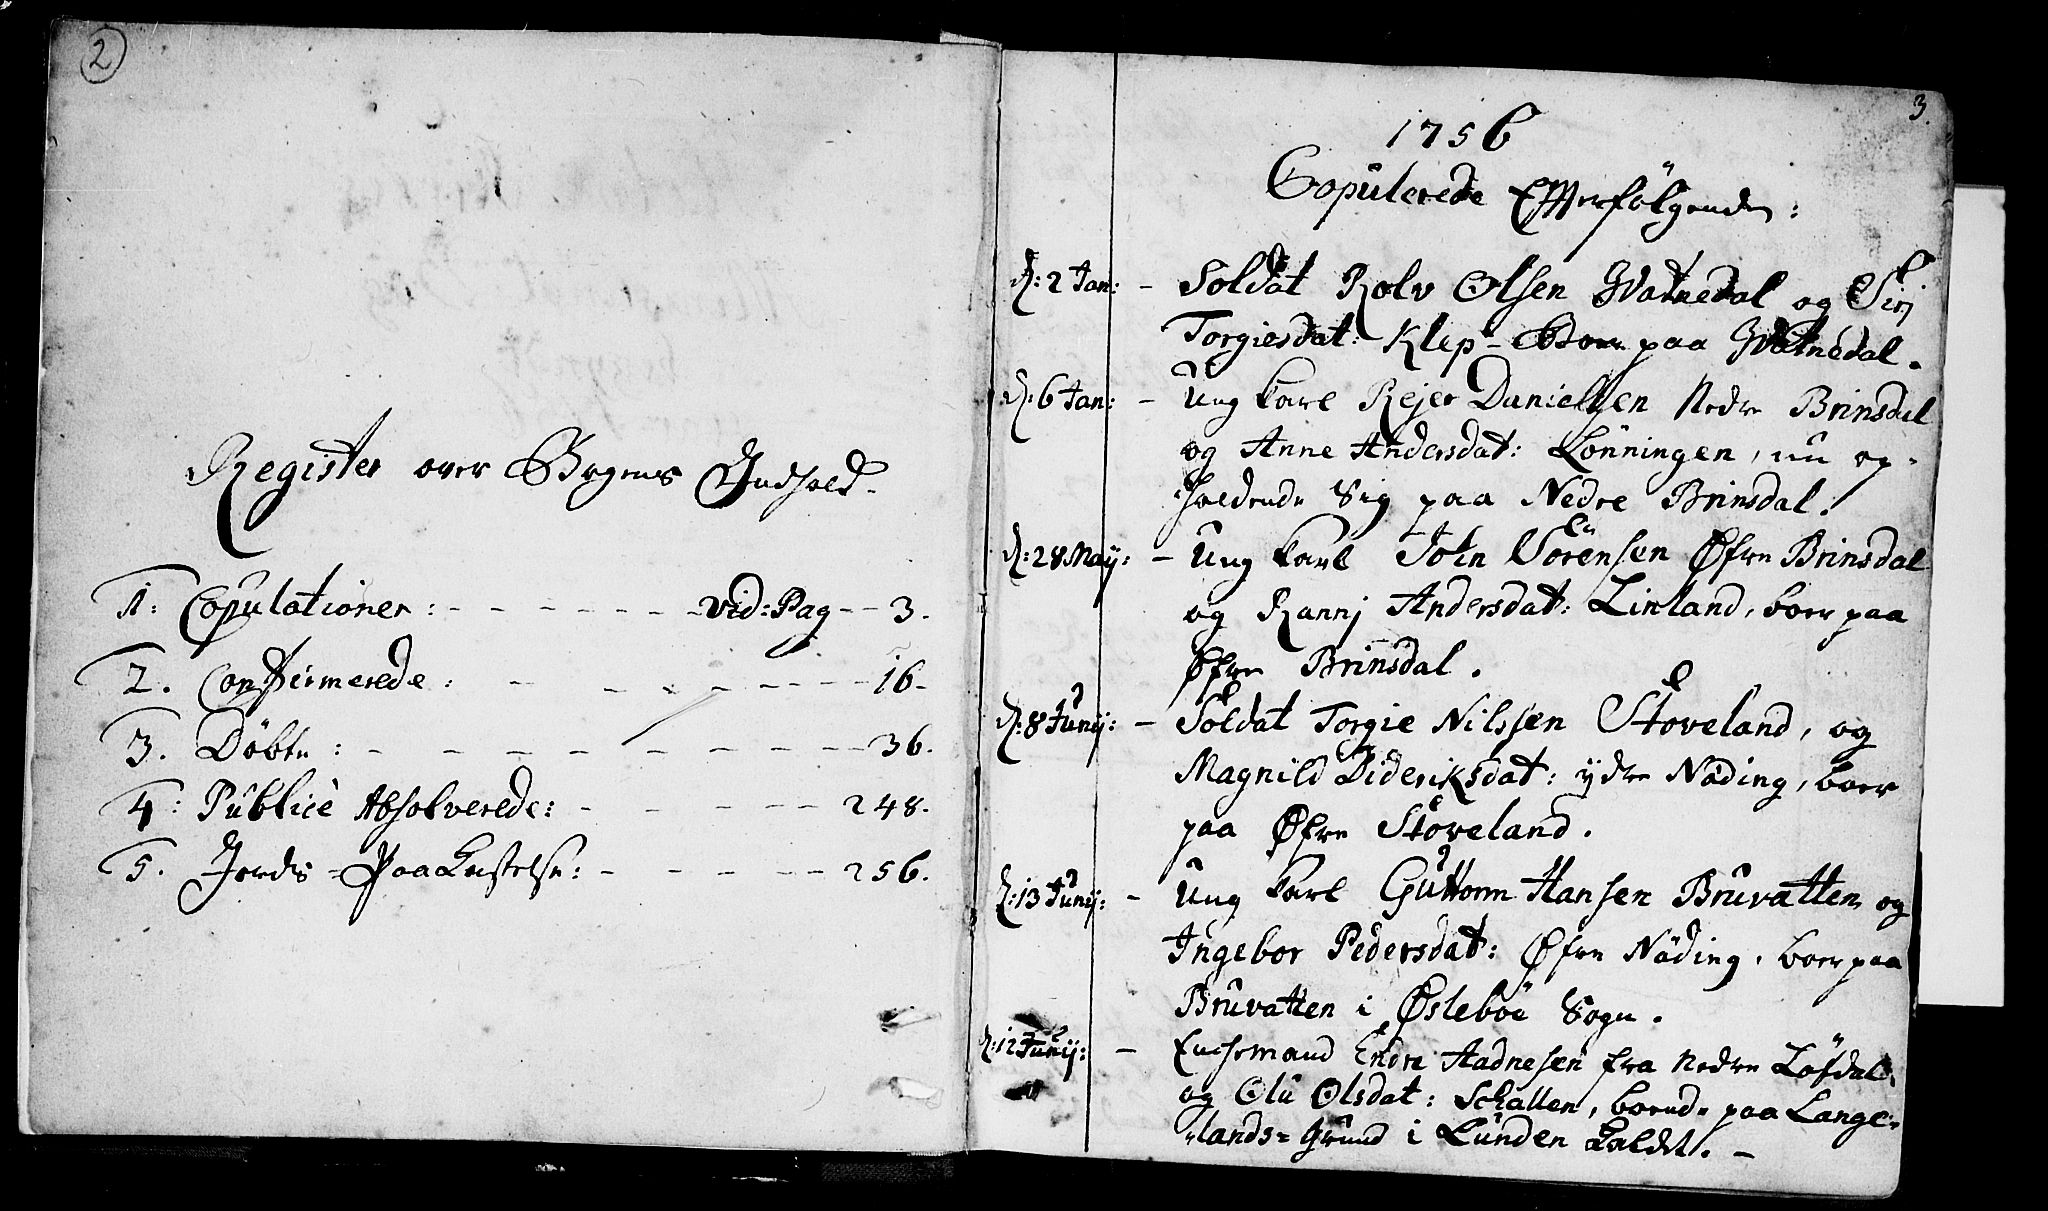 2
Register over Bogens Indhold.
1: Copulationer: - - - - - - - vid: Pag - - 3.
2. Confirmerede: - - - - - - - 16.
3. Döbte: - - - - - - - - 36.
4: Publicè Absolverede: - - - - - 248.
5. Jords-PaaKastelse: - - - - - 256.
3.
1756
Copulerede Efterfölgende:
d: 2 Jan: - Soldat Rolv Olsen Qvatnedal og Sirj
Torgiesdat: Klep - Boer paa Qvatnedal.
d: 6 Jan: - Ung Karl Rejer Danielsen Nedre Brinsdal
og Anne Andersdat: Lönningen, nu op-
holdende Sig paa Nedre Brinsdal.
d: 28 May: - Ung Karl John Sörensen Øfre Brinsdal
og Rannj Andersdat: Linland, boer paa
Øfre Brinsdal.
d: 8 Junij: - Soldat Torgie Nilssen Stoveland, og
Magnild Dideriksdat: ydre Nöding, boer
paa Øfre Stoveland.
d: 13 Junij: - Ung Karl Guttorm Hansen Bruvatten, og
Ingebor Pedersdat: Øfre Nöding, boer paa
Bruvatten i Øsleböe Sogn.
d: 12 Junij: - Enchemand Endre Aadnesen fra Nedre Löfdal,
og Olu Olsdat: Schallen, boende paa Lange-
lands-Grund i Lunden Kaldet. -